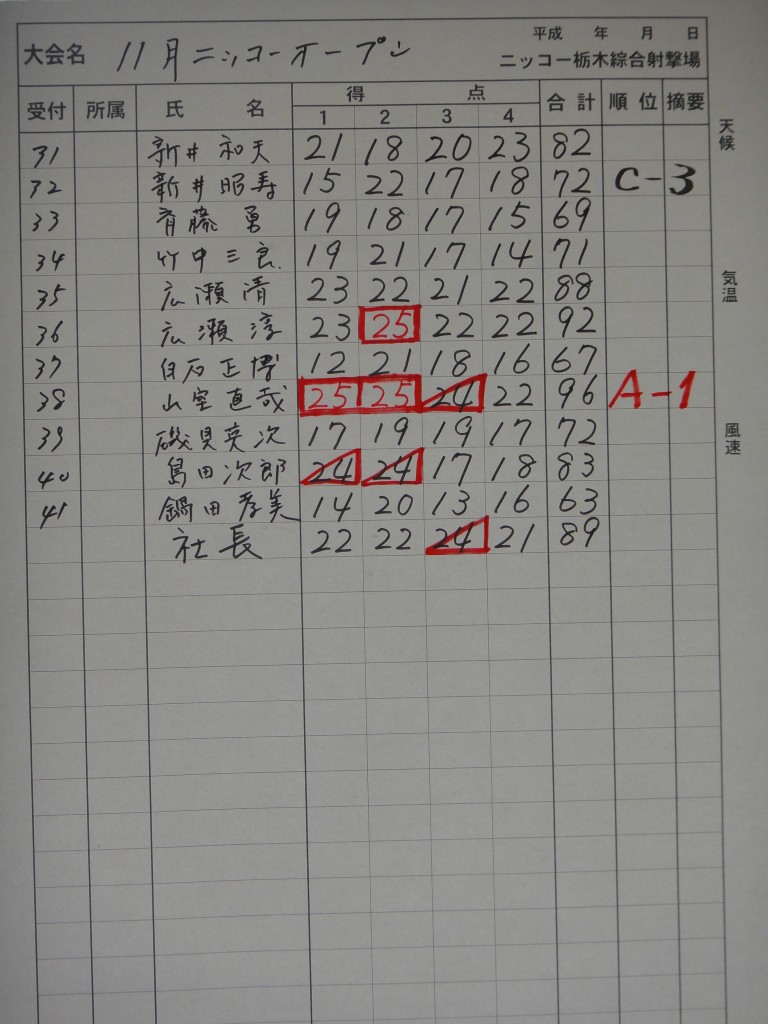 平成 年 月 日
大会名 11月ニッコーオープン ニッコー栃木綜合射撃場
受付 所属 氏 名 得 点 合計 順位 摘要
1 2 3 4
31 新井和夫 21 18 20 23 82
32 新井昭寿 15 22 17 18 72 C-3
33 斉藤勇 19 18 17 15 69
34 竹中三良 19 21 17 14 71
35 広瀬清 23 22 21 22 88
36 広瀬淳 23 25 22 22 92
37 白石正博 12 21 18 16 67
38 山室直哉 25 25 24 22 96 A-1
39 磯貝英次 17 19 19 17 72
40 島田次郎 24 24 17 18 83
41 鍋田孝美 14 20 13 16 63
社長 22 22 24 21 89
天候
気温
風速